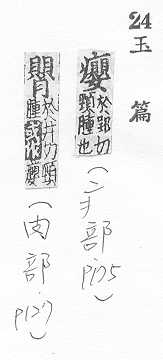 24
玉篇
癭 於郢切
頸腫也
(疒部, p175)
於井切頸
腫或作癭
(肉部, p127)